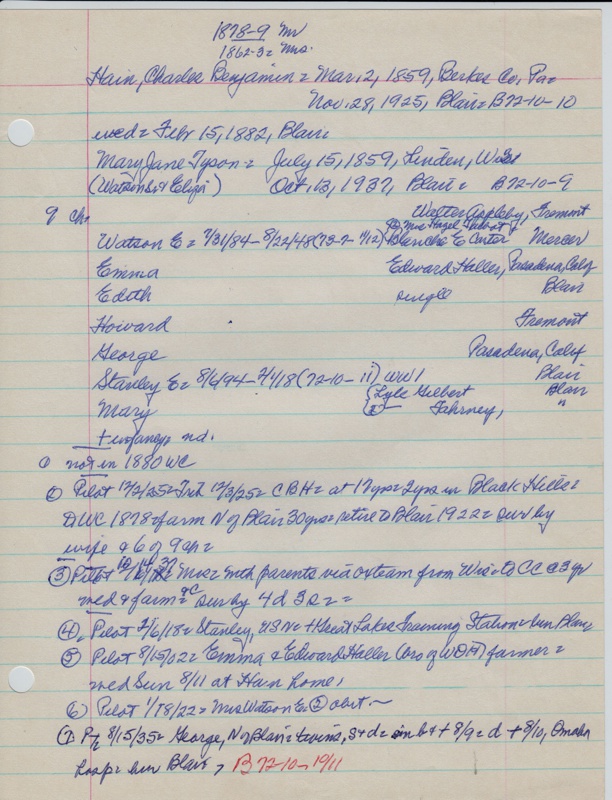 1878-9 Mr
1862-3= Mrs.
Hain, Charles Benjamin = Mar. 2, 1859, Berks Co, Pa=
Nov. 28, 1925, Blair= B72-10-10
wed= Febr 15, 1882, Blair
Mary Jane Tyson = July 15, 1859, Linden, Wis
(Watson & Eliza) Oct. 13, 1937, Blair = B72-10-9
9 ch. Walter Appleby, Fremont
② Mrs Hazel
Watson E= 7/31/84-8/22/48 Blanche E Mercer
Emma Edward Haller, Pasadena, Calif
Edith single Blair
Howard Fremont
George Pasadena, Calif
Stanley E= 8/6/94- (72-10-11) WW1 Blair
(Lyle Gilbert Blair
Mary ② Fahrney, "
+ infancy= nd.
① not in 1880 WC
② Pilot 12/2/25= 12/3/25= CBH= at 17yrs= 2yrs in Black Hills=
DWC 1878= farm N of Blair 30yrs= retire to Blair 1922= surv by
wife & 6 of 9 ch=
③ Pilot Mrs= with parents via ox team from Wis= to CC @ 3 yr
wed & farm= surv by 4 d 3 s =
④ Pilot Stanley, USN= + Great Lakes Training Station=
⑤ Pilot 8/15/02= Emma & Edward Haller (bro of WDH) farmer=
wed Sun 8/11 at Hain home,
⑥ Pilot Mrs Watson E= ② obit.~
⑦ 8/15/35= George, N of Blair= twins, s+d= b+ + 8/9= d + 8/10, Omaha
hosp= Blair, B72-10-19/11